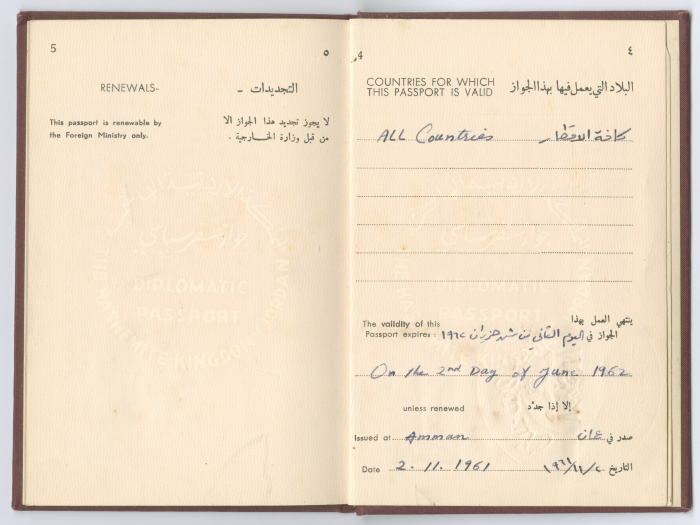 ٤
4
COUNTRIES FOR WHICH THIS PASSPORT IS VALID
البلاد التي يعمل فيها بهذا الجواز
ALL Countries كافة الاقطار
The validity of this Passport expires:
ينتهي العمل بهذا
الجواز في اليوم الثاني من شهر حزيران ١٩٦٢
On the 2nd Day of June 1962
unless renewed إلا إذا جدّد
Issued at Amman صدر في عمان
Date 2.11.1961 التاريخ ٢/١١/١٩٦١
5
٥
RENEWALS- التجديدات -
This passport is renewable by
the Foreign Ministry only.
لا يجوز تجديد هذا الجواز الا
من قبل وزارة الخارجية .
DIPLOMATIC
PASSPORT